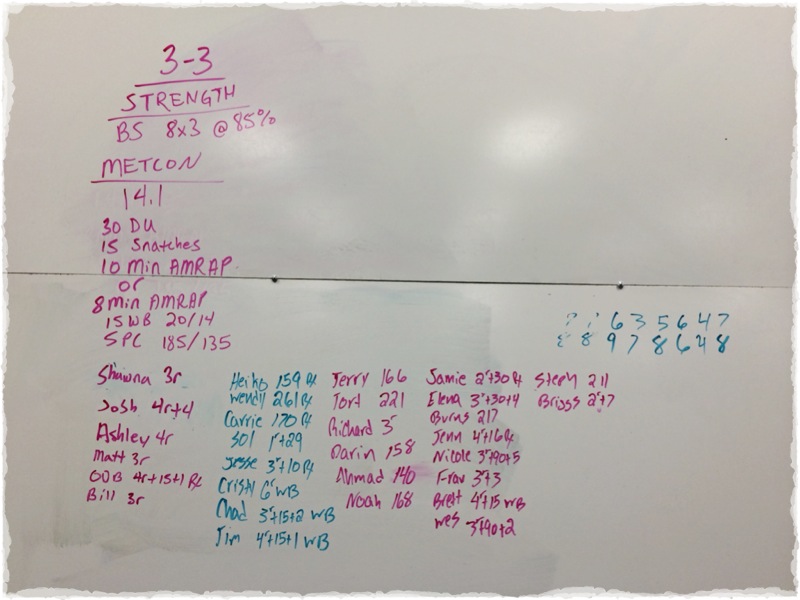 3-3
STRENGTH
BS 8x3 @ 85%
METCON
14.1
30 DU
15 Snatches
10 Min AMRAP
or
8 min AMRAP
15 WB 20/14
5 PC 185/135
6 3 5 6 4 7
8 9 7 8 6 4 8
Shawna 3r
Josh 4r+4
Ashley 4r
Matt 3r
ODB 4r+15+1 Rx
Bill 3r
Heiko 159 Rx
Wendy 261 Rx
Carrie 170 Rx
Sol 1r+29
Jesse 3r+10 Rx
Cristy 6r WB
Chad 3r+15+2 WB
Jim 4r+15+1 WB
Jerry 166
Tort 221
Richard 3r
Darin 158
Ahmad 140
Noah 168
Jamie 2r+30 Rx
Elena 3r+30+4
Burns 217
Jenn 4r+16 Rx
Nicole 3r+90+5
Frav 3r+3
Brett 4r+15 WB
Wes 3r+90+2
Steph 211
Briggs 2r+7